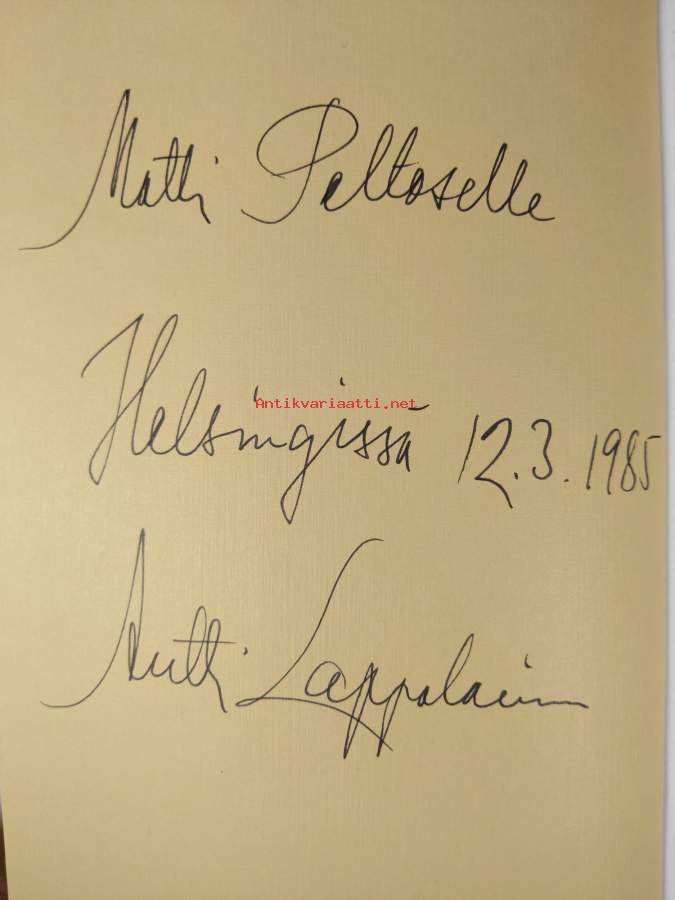 Matti Peltoselle
Antikvariaatti.net
Helsingissä 12.3.1985
Antti Lappalainen